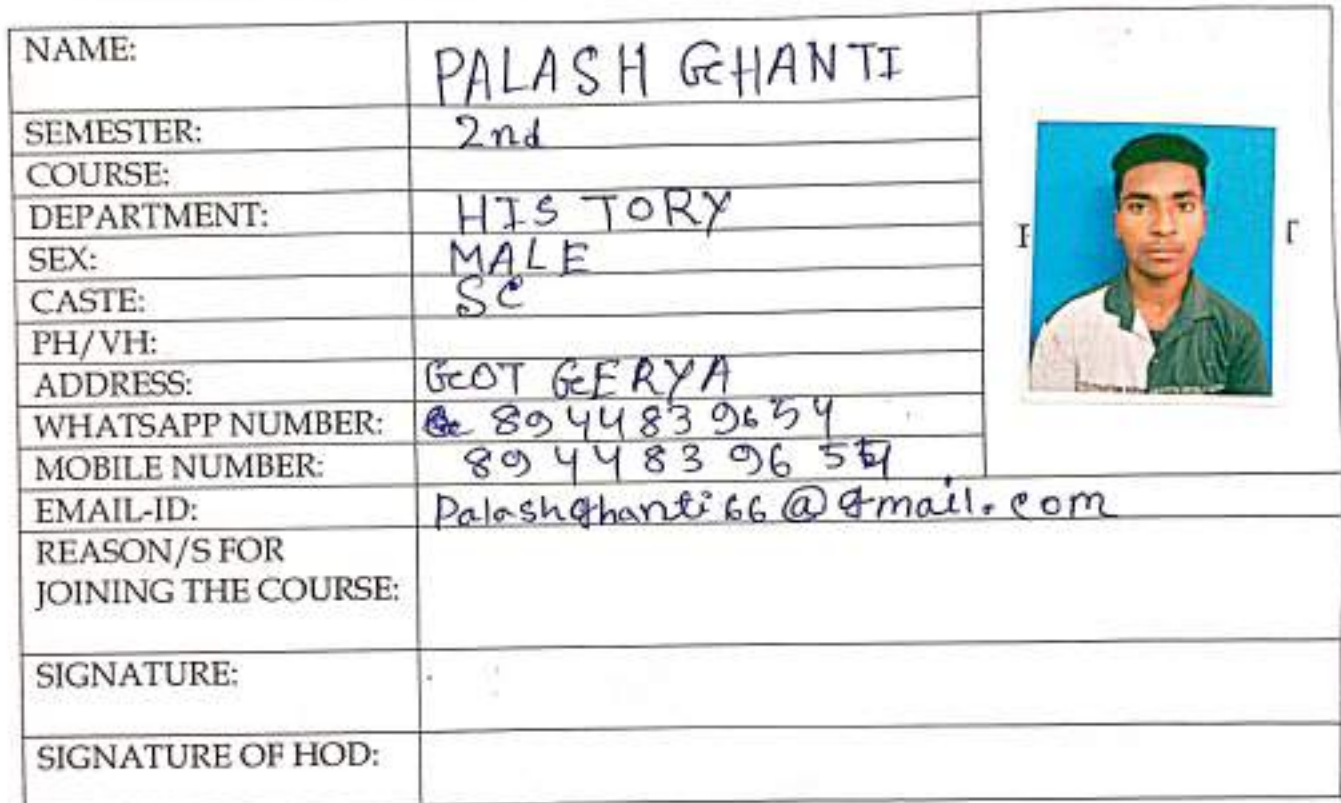 NAME: PALASH GHANTI
SEMESTER: 2nd
COURSE:
DEPARTMENT: HISTORY
SEX: MALE
CASTE: SC
PH/VH:
ADDRESS: GOT GERYA
WHATSAPP NUMBER: 8944839654
MOBILE NUMBER: 8944839654
EMAIL-ID: Palashghanti66@gmail.com
REASON/S FOR
JOINING THE COURSE:
SIGNATURE:
SIGNATURE OF HOD: